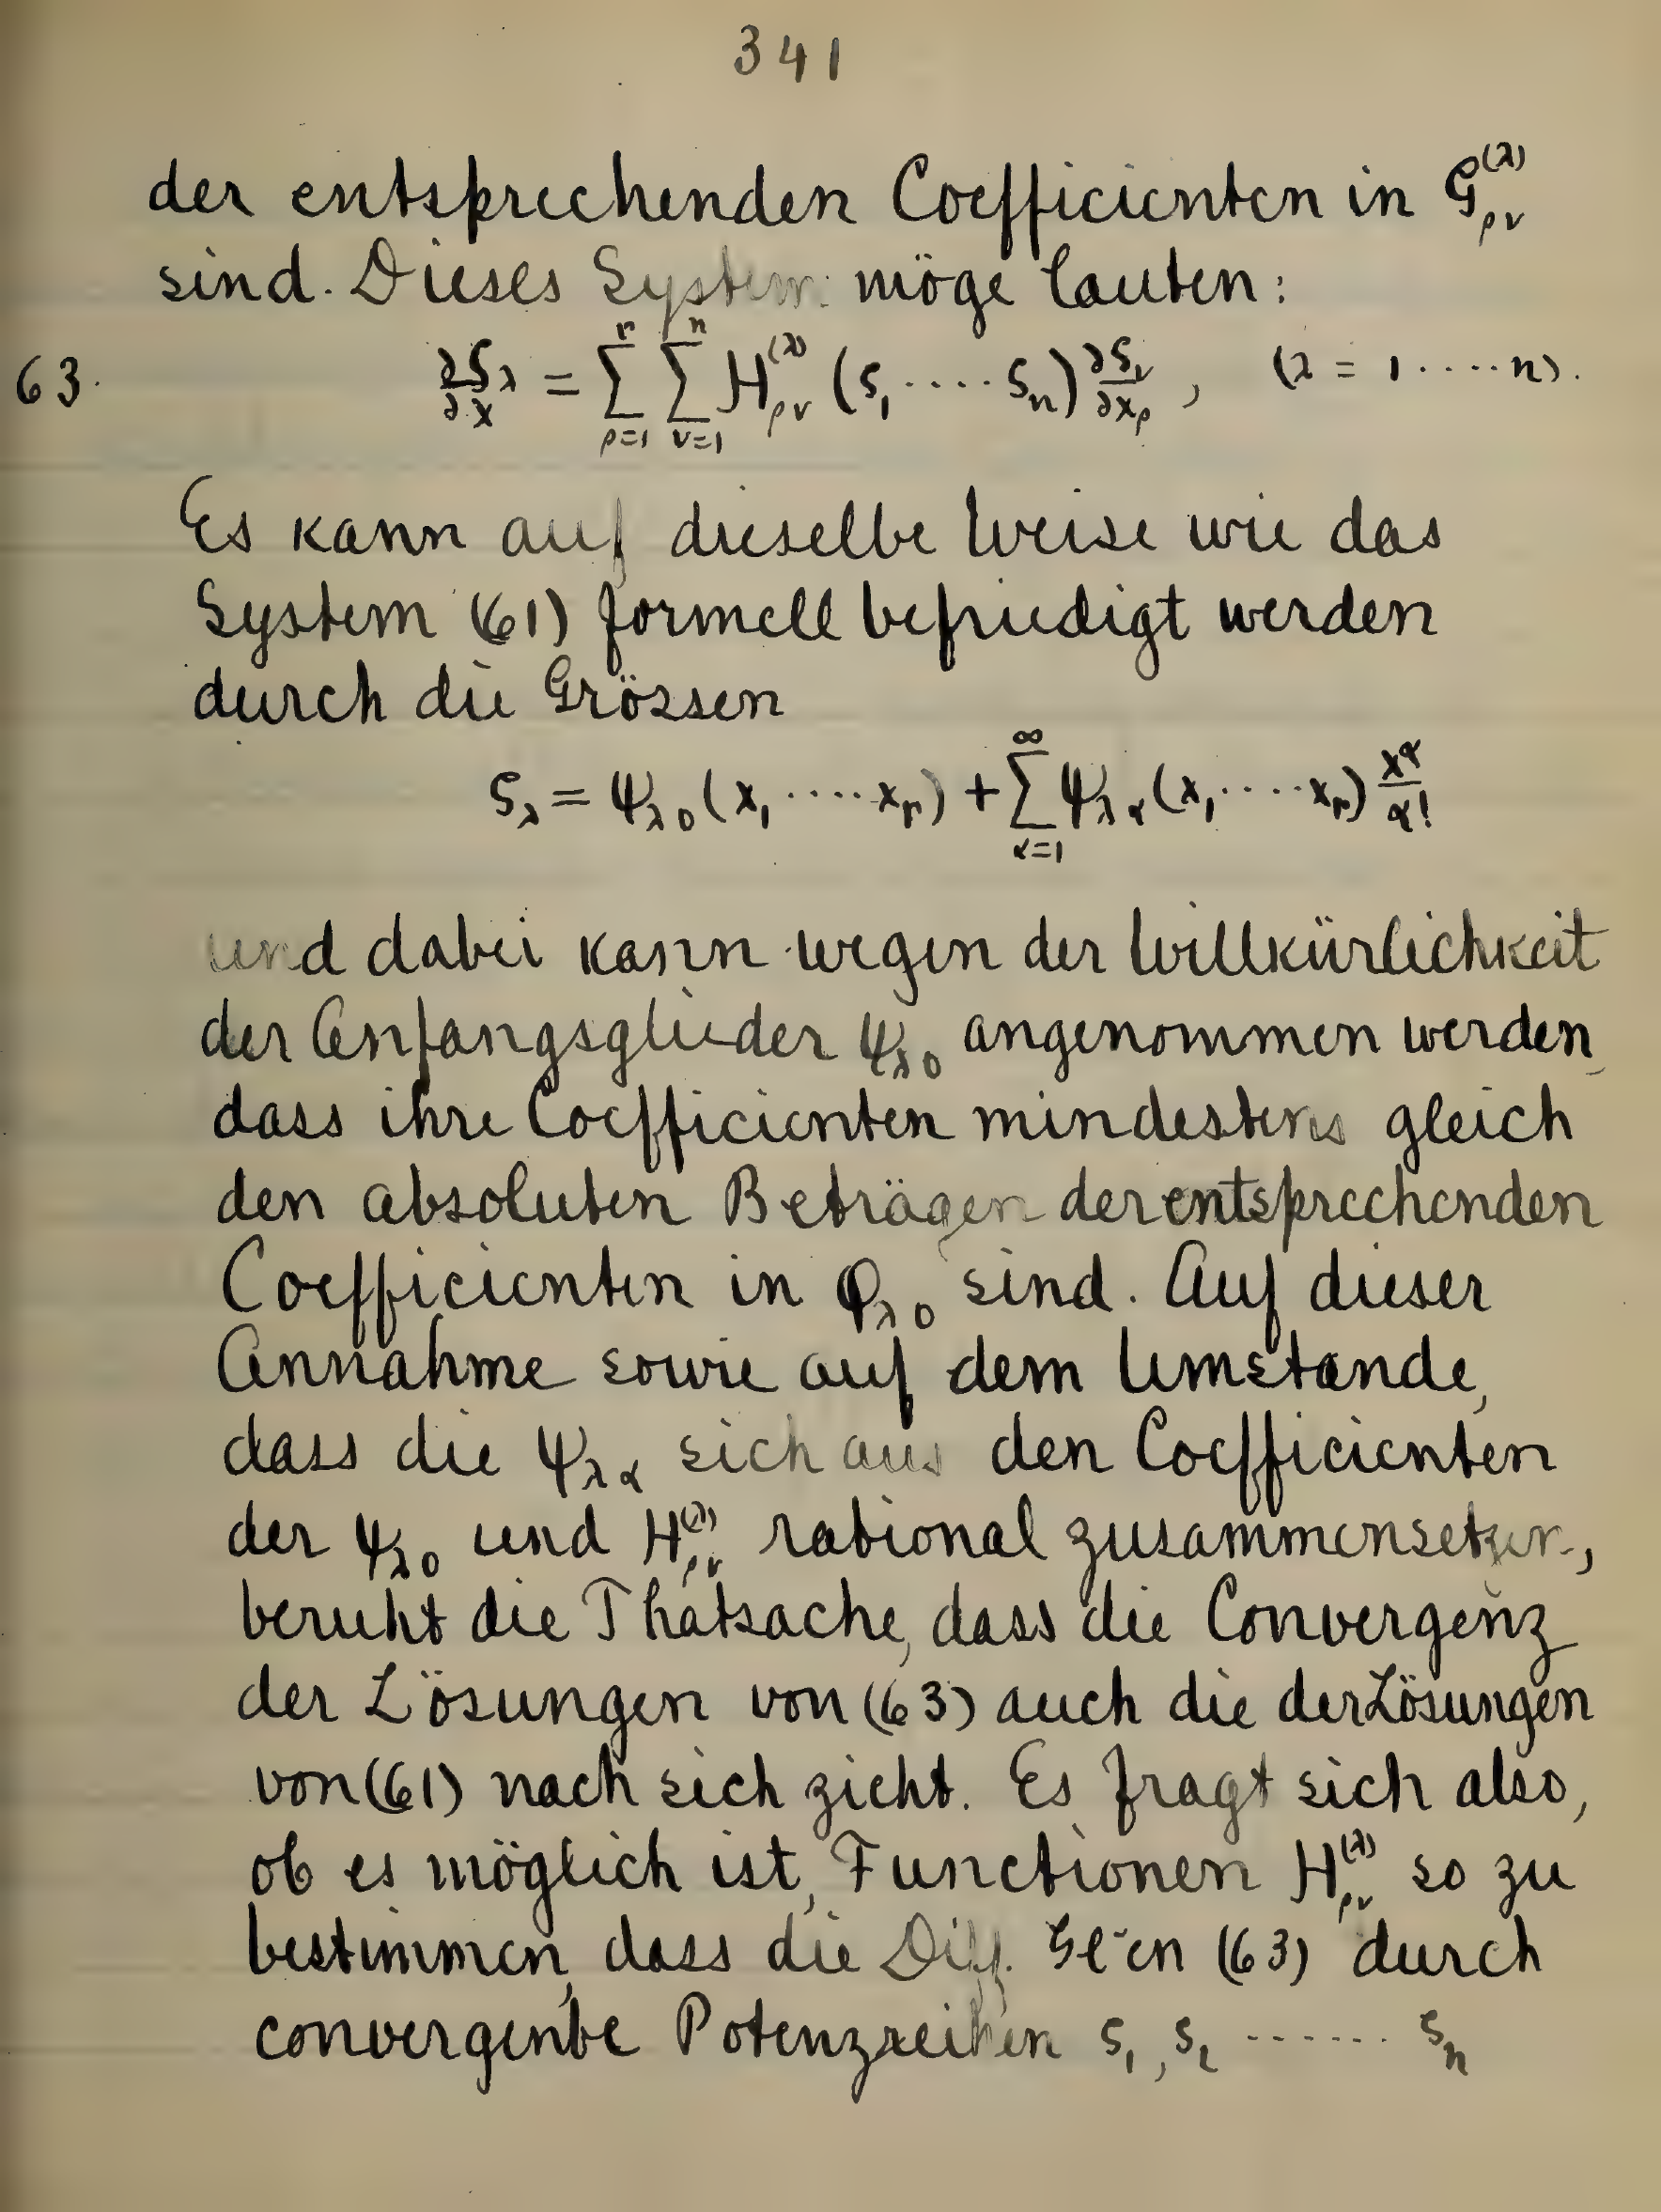 341
der entsprechenden Coefficienten in G_{ρν}^{(λ)}
sind. Dieses System möge lauten:
63. ∂ζ_λ/∂x = Σ_{ρ=1}^{r} Σ_{ν=1}^{n} H_{ρν}^{(λ)} (ζ_1 ····· ζ_n) ∂ζ_ν/∂x_ρ , (λ = 1 ····· n).
Es kann auf dieselbe Weise wie das
System (61) formell befriedigt werden
durch die Grössen
ζ_λ = ψ_{λ0} (x_1 ····· x_r) + Σ_{α=1}^{∞} ψ_{λα} (x_1 ····· x_r) x^α/α!
und dabei kann wegen der Willkürlichkeit
der Anfangsglieder ψ_{λ0} angenommen werden,
dass ihre Coefficienten mindestens gleich
den absoluten Beträgen der entsprechenden
Coefficienten in φ_{λ0} sind. Auf dieser
Annahme sowie auf dem Umstande,
dass die ψ_{λα} sich aus den Coefficienten
der ψ_{λ0} und H_{ρν}^{(λ)} rational zusammensetzen,
beruht die Thatsache, dass die Convergenz
der Lösungen von (63) auch die der Lösungen
von (61) nach sich zieht. Es fragt sich also,
ob es möglich ist, Functionen H_{ρν}^{(λ)} so zu
bestimmen, dass die Diff. Gl'en (63) durch
convergente Potenzreihen ζ_1, ζ_2 ······· ζ_n